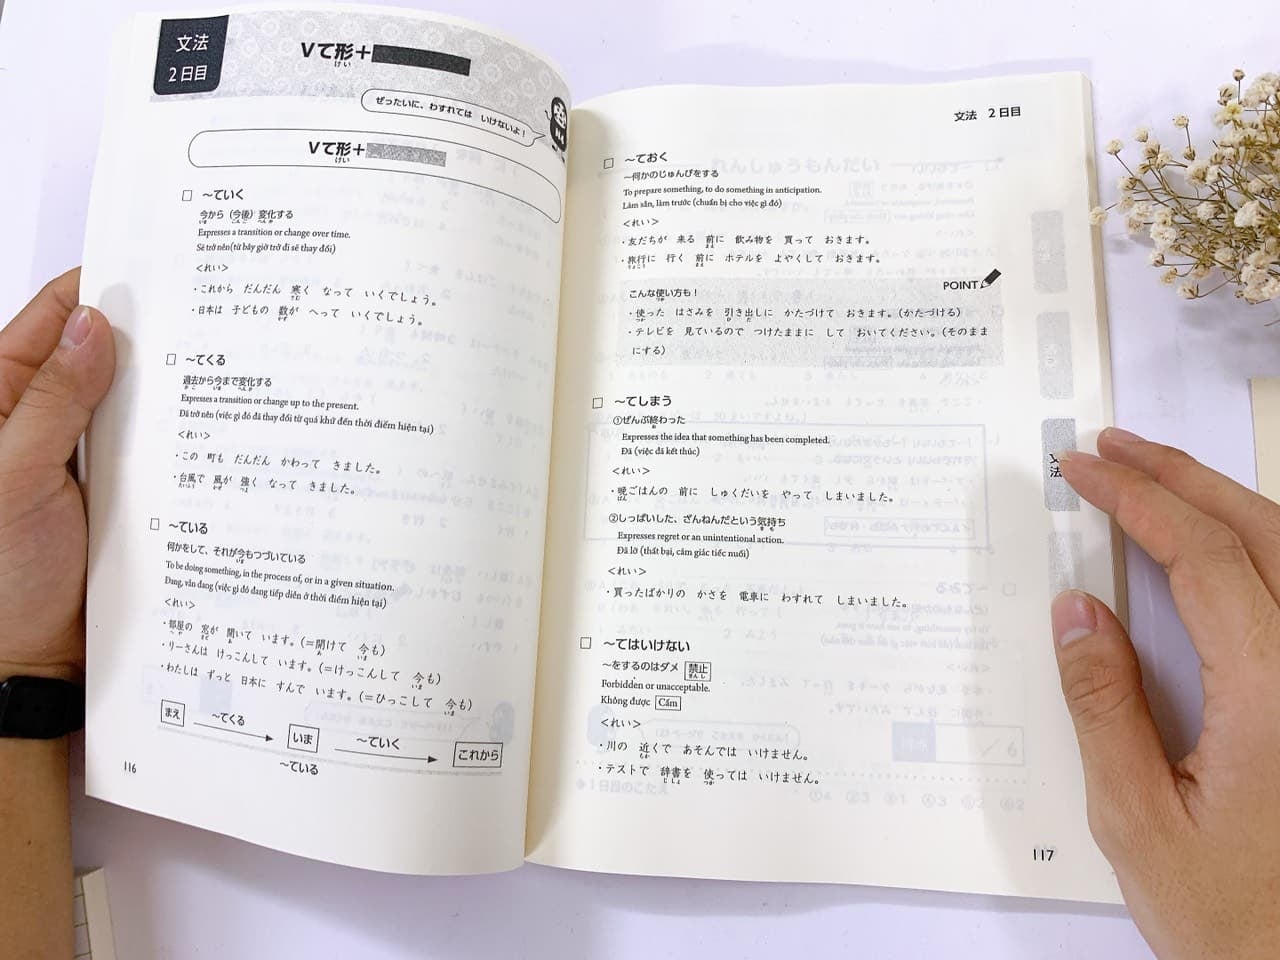 文法
2日目
Vて形+
けい
ぜったいに、わすれては いけないよ！
Vて形+
けい
□ ～ていく
今から（今後）変化する
いま こんご へんか
Expresses a transition or change over time.
Sẽ trở nên(từ bây giờ trở đi sẽ thay đổi)
＜れい＞
・これから だんだん 寒く なって いくでしょう。
さむ
・日本は 子どもの 数が へって いくでしょう。
かず
□ ～てくる
過去から今まで変化する
かこ いま へんか
Expresses a transition or change up to the present.
Đã trở nên (việc gì đó đã thay đổi từ quá khứ đến thời điểm hiện tại)
＜れい＞
・この 町も だんだん かわって きました。
・台風で 風が 強く なって きました。
たいふう かぜ つよ
□ ～ている
何かをして、それが今もつづいている
いま
To be doing something, in the process of, or in a given situation.
Đang, vẫn đang (việc gì đó đang tiếp diễn ở thời điểm hiện tại)
＜れい＞
・部屋の 窓が 開いて います。(＝開けて 今も)
へや まど あ あ いま
・リーさんは けっこんして います。(＝けっこんして 今も)
いま
・わたしは ずっと 日本に すんで います。(＝ひっこして 今も)
いま
まえ ～てくる いま ～ていく これから
～ている
116
文法 2日目
□ ～ておく
～何かのじゅんびをする
To prepare something, to do something in anticipation.
Làm sẵn, làm trước (chuẩn bị cho việc gì đó)
＜れい＞
・友だちが 来る 前に 飲み物を 買って おきます。
まえ
・旅行に 行く 前に ホテルを よやくして おきます。
りょこう まえ
POINT
こんな使い方も！
つか
・使った はさみを 引き出しに かたづけて おきます。(かたづける)
つか ひ だ
・テレビを 見ているので つけたままに して おいてください。(そのまま
にする)
□ ～てしまう
①ぜんぶ終わった
お
Expresses the idea that something has been completed.
Đã (việc đã kết thúc)
＜れい＞
・晩ごはんの 前に しゅくだいを やって しまいました。
ばん
②しっぱいした、ざんねんだという気持ち
きも
Expresses regret or an unintentional action.
Đã lỡ (thất bại, cảm giác tiếc nuối)
＜れい＞
・買ったばかりの かさを 電車に わすれて しまいました。
□ ～てはいけない
～をするのはダメ 禁止
きんし
Forbidden or unacceptable.
Không được Cấm
＜れい＞
・川の 近くで あそんでは いけません。
ちか
・テストで 辞書を 使っては いけません。
じしょ つか
117
文法